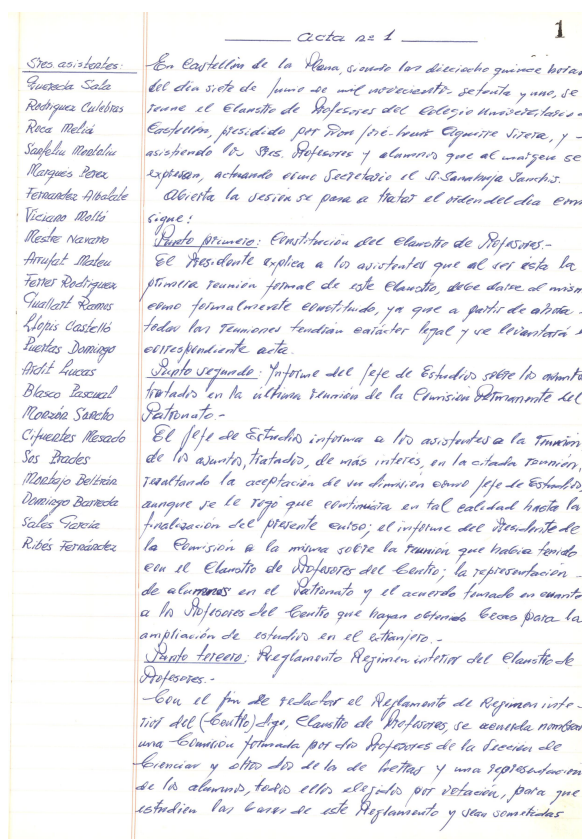 1
acta nº 1
Sres. asistentes:
Quereda Sala
Rodriguez Culebras
Roca Meliá
Sanfeliu Montolio
Marques Perez
Fernandez Albalate
Viciano Molló
Mestre Navarro
Arrufat Mateu
Ferrer Rodriguez
Guallart Ramos
Llopis Castelló
Puertas Domingo
Ardit Lucas
Blasco Pascual
Monzón Sancho
Cifuentes Mesado
Sos Prades
Montajo Beltrán
Domingo Barreda
Sales Garcia
Ribés Fernández
En Castellón de la Plana, siendo las dieciocho quince horas
del día siete de Junio de mil novecientos setenta y uno, se
reune el Claustro de Profesores del Colegio Universitario
Castellón, presidido por Don José-Luis Aguirre Sirera, y -
asistiendo los Sres. Profesores y alumnos que al márgen se
expresan, actuando como Secretario el Sr. Sanahuja Sanchis.
Abierta la sesión se pasa a tratar el orden del día como
sigue:
Punto primero: Constitución del Claustro de Profesores.-
El Presidente explica a los asistentes que al ser ésta la
primera reunión formal de este Claustro, debe darse al mismo
como formalmente constituido, ya que a partir de ahora -
todas las reuniones tendrán carácter legal y se levantará
correspondiente acta.
Punto segundo: Informe del Jefe de Estudios sobre los asuntos
tratados en la última reunión de la Comisión Permanente del
Patronato.-
El Jefe de Estudios informa a los asistentes a la reunión
de los asuntos, tratados, de más interés, en la citada reunión,
resaltando la aceptación de su dimisión como Jefe de Estudios,
aunque se le rogó que continuara en tal calidad hasta la
finalización del presente curso; el informe del Presidente de
la Comisión a la misma sobre la reunión que había tenido
con el Claustro de Profesores del Centro; la representación -
de alumnos en el Patronato y el acuerdo tomado en cuanto
a los Profesores del Centro que hayan obtenido becas para la
ampliación de estudios en el extranjero.-
Punto tercero: Reglamento Regimen interior del Claustro de
Profesores.-
Con el fin de redactar el Reglamento de Regimen inte-
rior del (Centro) digo, Claustro de Profesores, se acuerda nombrar
una Comisión formada por dos Profesores de la Sección de
Ciencias y otros dos de la de Letras y una representación
de los alumnos, todos ellos elegidos por votación, para que
estudien las bases de este Reglamento y sean sometidas